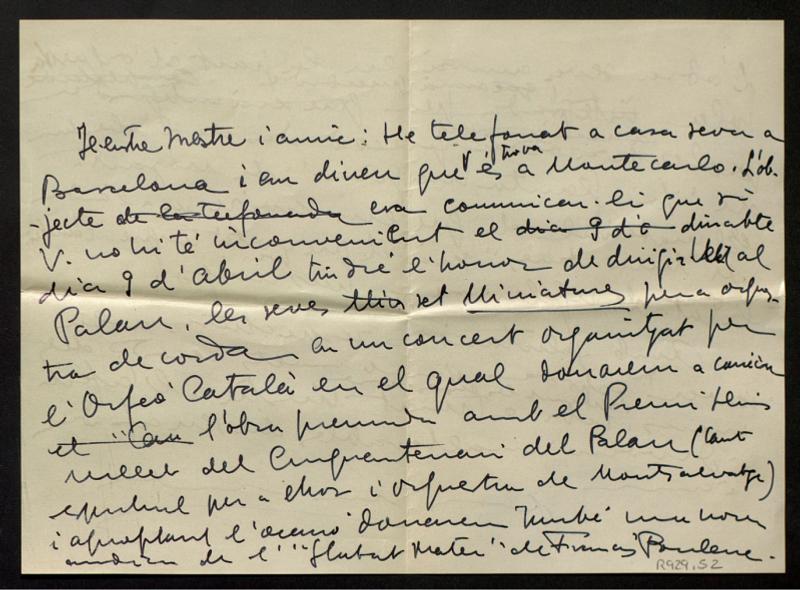 Il·lustre Mestre i amic: He telefonat a casa seva a
Barcelona i em diuen que V. és a Montecarlo. L'ob-
-jecte de la telefonada era comunicar-li que si
V. no hi té inconvenient el dia 9 d'a dissabte
dia 9 d'abril tindré l'honor de dirigir al
Palau, les seves set Miniatures per a orques-
tra de corda en un concert organitzat per
l'Orfeó Català en el qual donarem a conèixer
l'obra premiada amb el Premi Lluís
Millet del Cinquantenari del Palau (Cant
espiritual per a chor i orquestra de Montsalvatge)
i aprofitant l'ocasió donarem també una nova
audició de l'"Stabat Mater" de Francis Poulenc.
R929.52